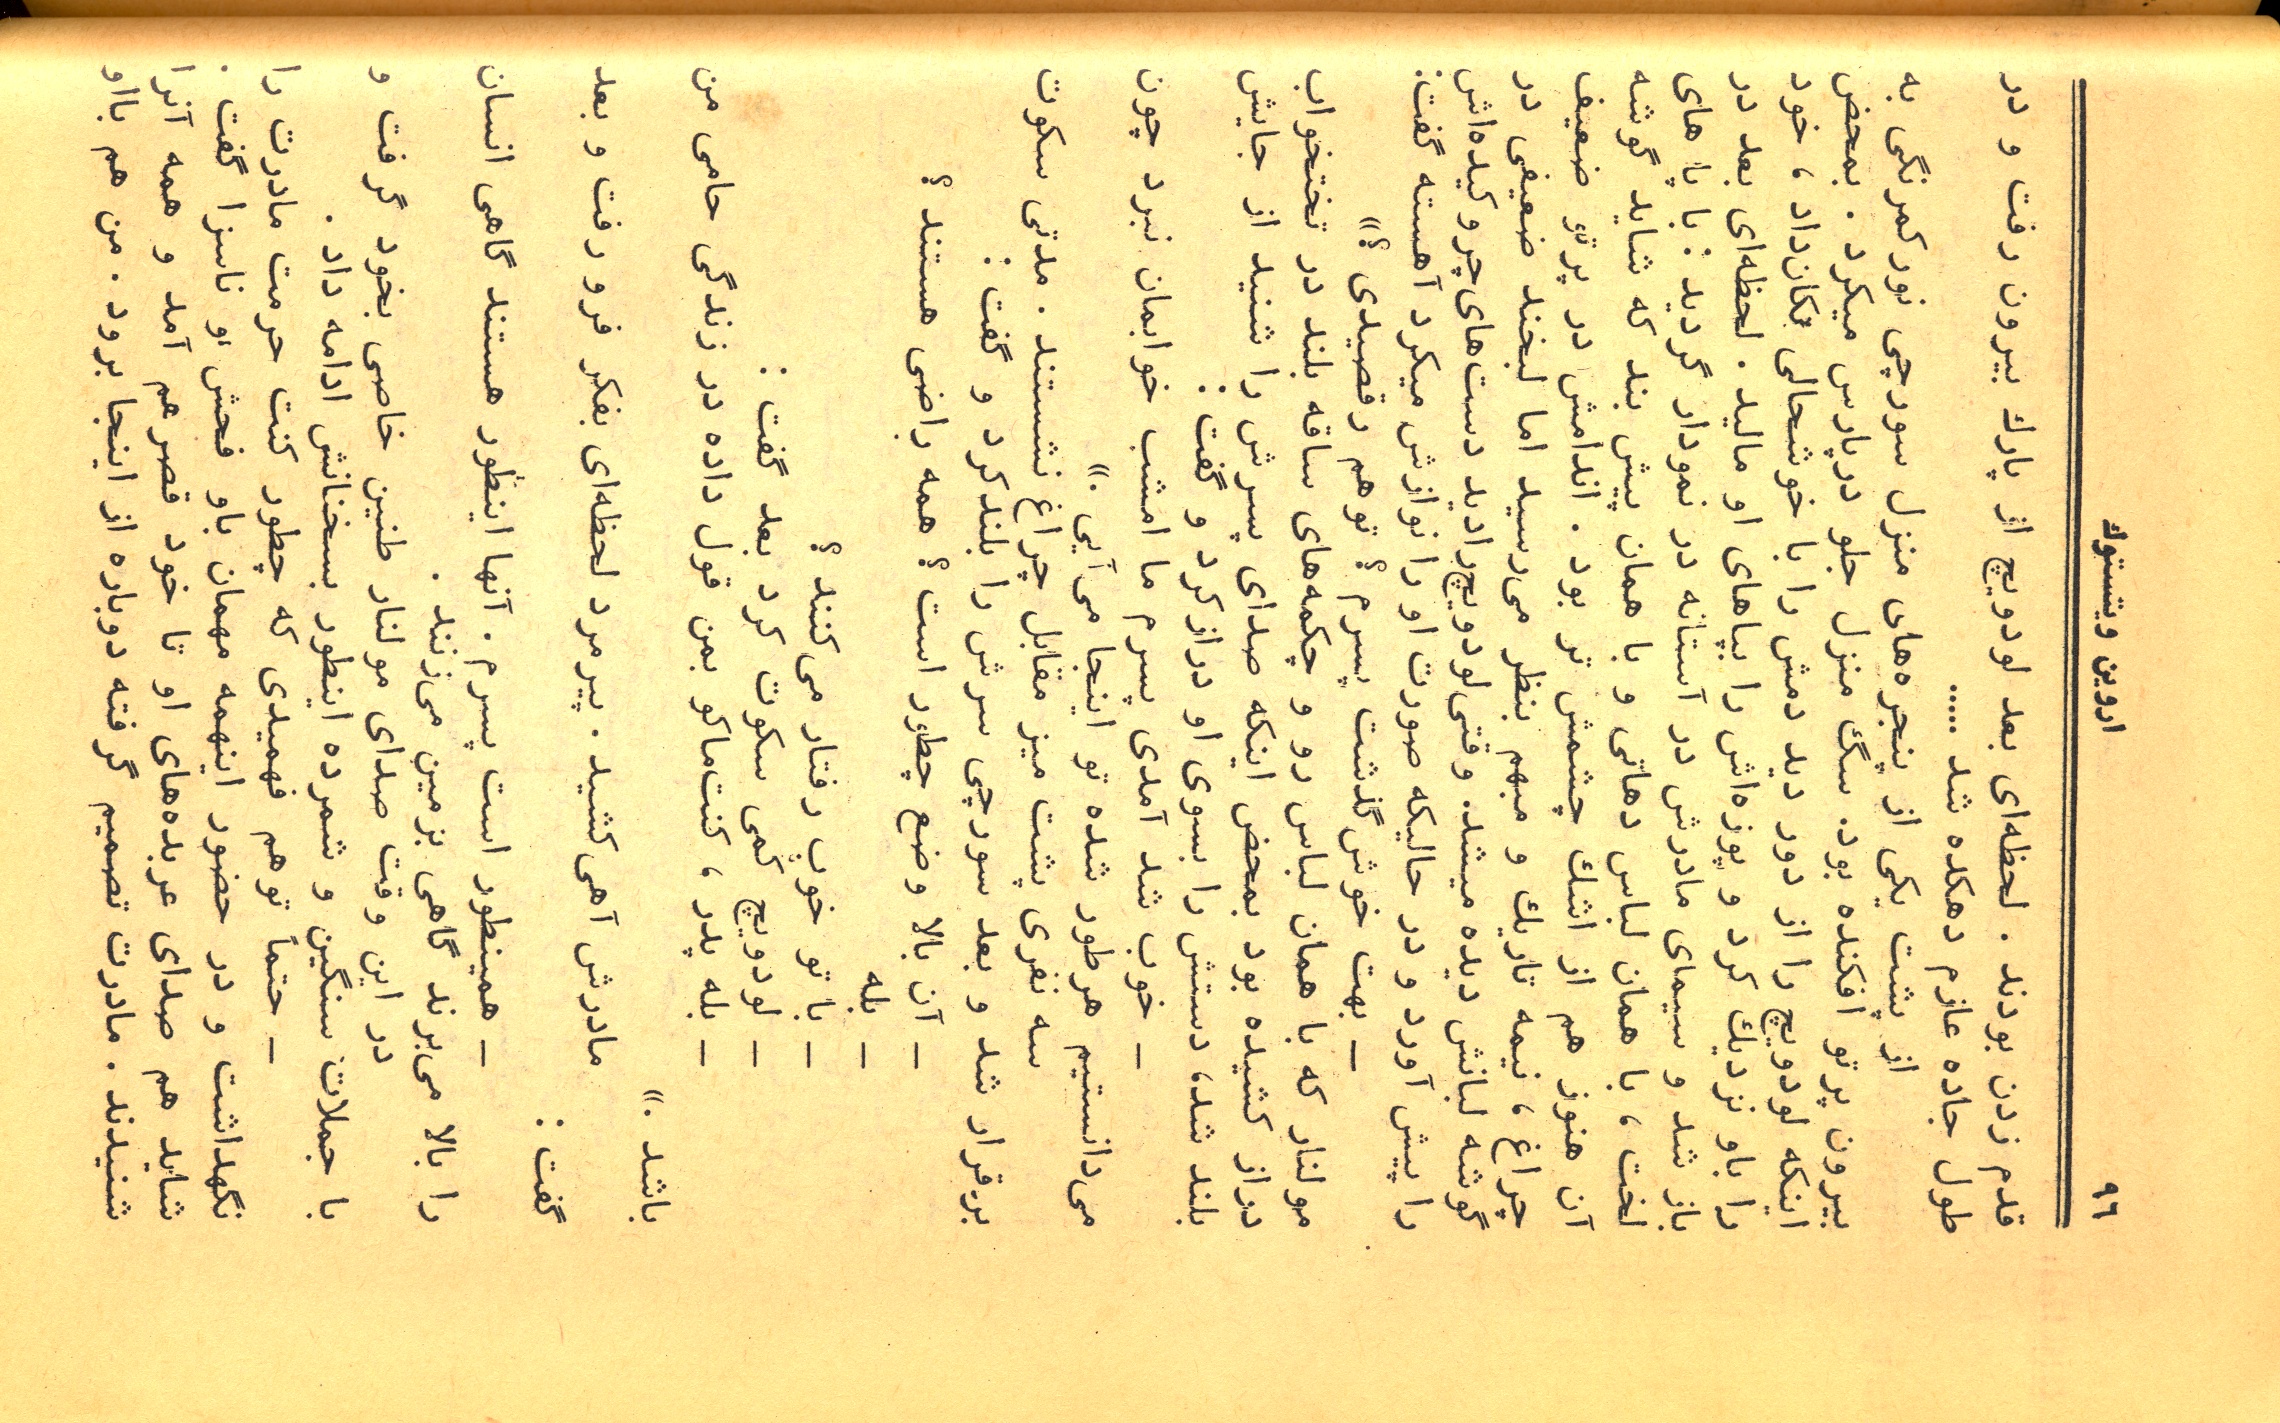 ۹۶ اروین ویستوك
قدم زدن بودند . لحظه‌ای بعد لودویج از پارك بیرون رفت و در
طول جاده عازم دهکده شد .....
از پشت یکی از پنجره‌های منزل سورچی نور کمرنگی به
بیرون پرتو افکنده بود. سگ منزل جلو درپارس میکرد . بمحض
اینکه لودویج را از دور دید دمش را با خوشحالی تکان‌داد ، خود
را باو نزدیك کرد و پوزه‌اش را بپاهای او مالید . لحظه‌ای بعد در
باز شد و سیمای مادرش در آستانه در نمودار گردید : با پا های
لخت ، با همان لباس دهاتی و با همان پیش بند که شاید گوشه
آن هنوز هم از اشك چشمش تر بود . اندامش در پرتو ضعیف
چراغ ، نیمه تاریك و مبهم بنظر می‌رسید اما لبخند ضعیفی در
گوشه لبانش دیده میشد. وقتی‌لودویج‌رادید دست‌های‌چروکیده‌اش
را پیش آورد و در حالیکه صورت او را نوازش میکرد آهسته گفت:
– بهت خوش گذشت پسرم ؟ توهم رقصیدی ؟»
مولنار که با همان لباس رو و چکمه‌های ساقه بلند در تختخواب
دراز کشیده بود بمحض اینکه صدای پسرش را شنید از جایش
بلند شد، دستش را بسوی او دراز کرد و گفت :
– خوب شد آمدی پسرم ما امشب خوابمان نبرد چون
می‌دانستیم هرطور شده تو اینجا می‌آیی .»
سه نفری پشت میز مقابل چراغ نشستند . مدتی سکوت
برقرار شد و بعد سورچی سرش را بلند کرد و گفت :
– آن بالا وضع چطور است ؟ همه راضی هستند ؟
– بله
– با تو خوب رفتار می‌کنند ؟
– لودویج کمی سکوت کرد بعد گفت :
– بله پدر ، کنت‌ماکو بمن قول داده در زندگی حامی من
باشد .»
مادرش آهی کشید . پیرمرد لحظه‌ای بفکر فرو رفت و بعد
گفت :
– همینطور است پسرم . آنها اینطور هستند گاهی انسان
را بالا می‌برند گاهی بزمین می‌زنند .
در این وقت صدای مولنار طنین خاصی بخود گرفت و
با جملات سنگین و شمرده اینطور بسخنانش ادامه داد .
– حتماً توهم فهمیدی که چطور کنت حرمت مادرت را
نگهداشت و در حضور اینهمه مهمان باو فحش و ناسزا گفت .
شاید هم صدای عربده‌های او تا خود قصرهم آمد و همه آنرا
شنیدند . مادرت تصمیم گرفته دوباره از اینجا برود . من هم بااو